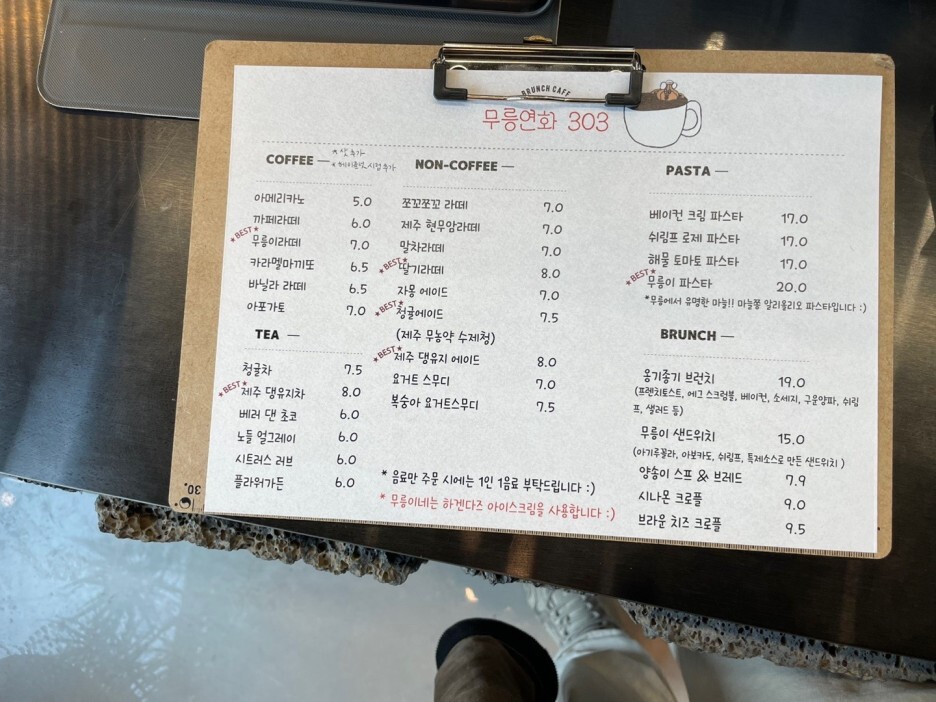 BRUNCH CAFE
무릉연화 303
COFFEE —
* 샷 추가
* 헤이즐넛 시럽 추가
아메리카노 5.0
까페라떼 6.0
*BEST*
무릉이라떼 7.0
카라멜마끼또 6.5
바닐라 라떼 6.5
아포가토 7.0
TEA —
청귤차 7.5
*BEST*
제주 댕유지차 8.0
베러 댄 초코 6.0
노들 얼그레이 6.0
시트러스 러브 6.0
플라워가든 6.0
NON-COFFEE —
쪼꼬쪼꼬 라떼 7.0
제주 현무암라떼 7.0
말차라떼 7.0
*BEST*
딸기라떼 8.0
자몽 에이드 7.0
*BEST*
청귤에이드 7.5
(제주 무농약 수제청)
*BEST*
제주 댕유지 에이드 8.0
요거트 스무디 7.0
복숭아 요거트스무디 7.5
* 음료만 주문 시에는 1인 1음료 부탁드립니다 :)
* 무릉이네는 하겐다즈 아이스크림을 사용합니다 :)
PASTA —
베이컨 크림 파스타 17.0
쉬림프 로제 파스타 17.0
해물 토마토 파스타 17.0
*BEST*
무릉이 파스타 20.0
*무릉에서 유명한 마늘!! 마늘쫑 알리올리오 파스타입니다 :)
BRUNCH —
옹기종기 브런치 19.0
(프렌치토스트, 에그 스크럼블, 베이컨, 소세지, 구운양파, 쉬림
프, 샐러드 등)
무릉이 샌드위치 15.0
(아기루꼴라, 아보카도, 쉬림프, 특제소스로 만든 샌드위치 )
양송이 스프 & 브레드 7.9
시나몬 크로플 9.0
브라운 치즈 크로플 9.5
30.